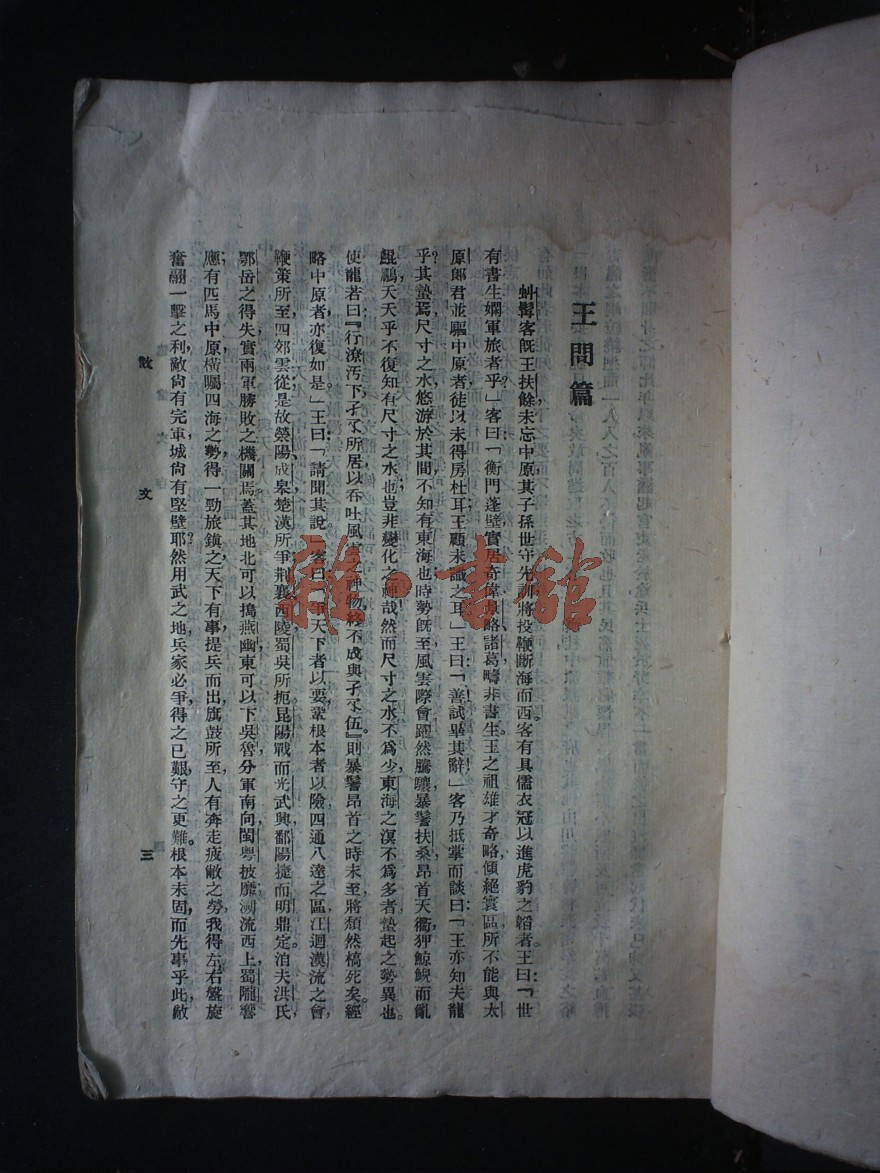 王問篇
虯髯客旣王扶餘未忘中原其子孫世守先訓將投鞭斷海而西客有具儒衣冠以進虎豹之韜者王曰「世
有書生嫻軍旅者乎?」客曰「衡門蓬壁實居奇偉隆略諸葛疇非書生王之祖雄才奇略傾絕寰區所不能與太
原郞君並驅中原者徒以未得房杜耳王顧未識之耳」王曰「善試畢其辭」客乃抵掌而談曰「王亦知夫龍
乎?其蟄焉尺寸之水悠游於其間不知有東海也時勢旣至風雲際會躍然騰驤暴鬐扶桑昂首天衢狎鯨鯢而亂
鯤鵬天天乎不復知有尺寸之水也豈非變化之神哉然而尺寸之水不爲少東海之溟不爲多者蟄起之勢異也。
使龍若曰『行潦汚下孑孓所居以吞吐風雲之神物終不成與孑孓伍』則暴鬐昂首之時未至將頹然槁死矣。經
略中原者亦復如是。」王曰「請聞其說。」客曰「爭天下者以要鞏根本者以險四通八達之區江迴漢流之會
鞭策所至四郊雲從是故滎陽成皋楚漢所爭荆襄西陵蜀吳所扼昆陽戰而光武興鄱陽捷而明鼎定洎夫洪氏
鄂岳之得失實兩軍勝敗之機關焉蓋其地北可以搗燕幽東可以下吳會分軍南向閩粵披靡溯流西上蜀隴響
應有匹馬中原橫囑四海之勢得一勁旅鎭之天下有事提兵而出旗鼓所至人有奔走疲敝之勞我得左右盤旋
奮翮一擊之利敵尙有完軍城尙有堅壁耶然用武之地兵家必爭得之已艱守之更難。根本未固而先事乎此敵
散文
三
雜·書館